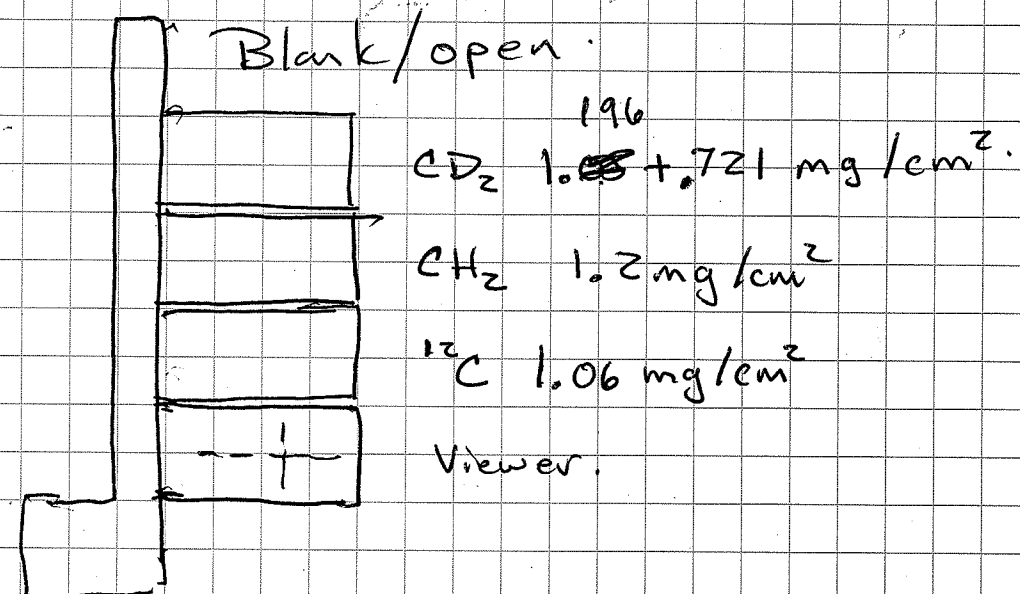 Blank/open.
196
CD₂ 1. +.721 mg/cm².
CH₂ 1.2 mg/cm²
¹²C 1.06 mg/cm²
Viewer.